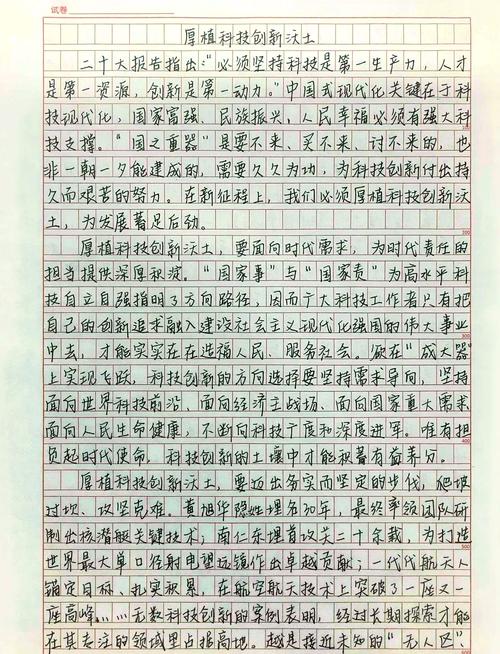 试卷
厚植科技创新沃土
二十大报告指出:“必须坚持科技是第一生产力,人才
是第一资源,创新是第一动力。”中国式现代化关键在于科
技现代化,国家富强、民族振兴、人民幸福必须有强大科
技支撑。“国之重器”是要不来、买不来、讨不来的,也
非一朝一夕能建成的,需要久久为功,为科技创新付出持
久而艰苦的努力。在新征程上,我们必须厚植科技创新沃
土,为发展蓄足后劲。
200
厚植科技创新沃土,要面向时代需求,为时代责任的
担当提供深厚积淀。“国家事”与“国家责”为高水平科
技自立自强指明了方向路径,因而广大科技工作者只有把
自己的创新追求融入建设社会主义现代化强国的伟大事业
中去,才能实实在在造福人民、服务社会。欲在“成大器”
上实现飞跃,科技创新的方向选择要坚持需求导向,坚持
面向世界科技前沿、面向经济主战场、面向国家重大需求
面向人民生命健康,不断向科技广度和深度进军。唯有担
400
负起时代使命,科技创新的土壤中才能积蓄有益养分。
厚植科技创新沃土,要迈出务实而坚定的步伐,爬坡
过坎、攻坚克难。黄旭华隐姓埋名30年,最终率领团队研
制出核潜艇关键技术;南仁东埋首攻关二十余载,为打造
500
世界最大单口径射电望远镜作出卓越贡献;一代代航天人
锚定目标、扎实积累,在航空航天技术上突破了一座又一
座高峰……无数科技创新的案例表明,经过长期探索才能
在其专注的领域里占据高地。越是接近未知的“无人区”
600